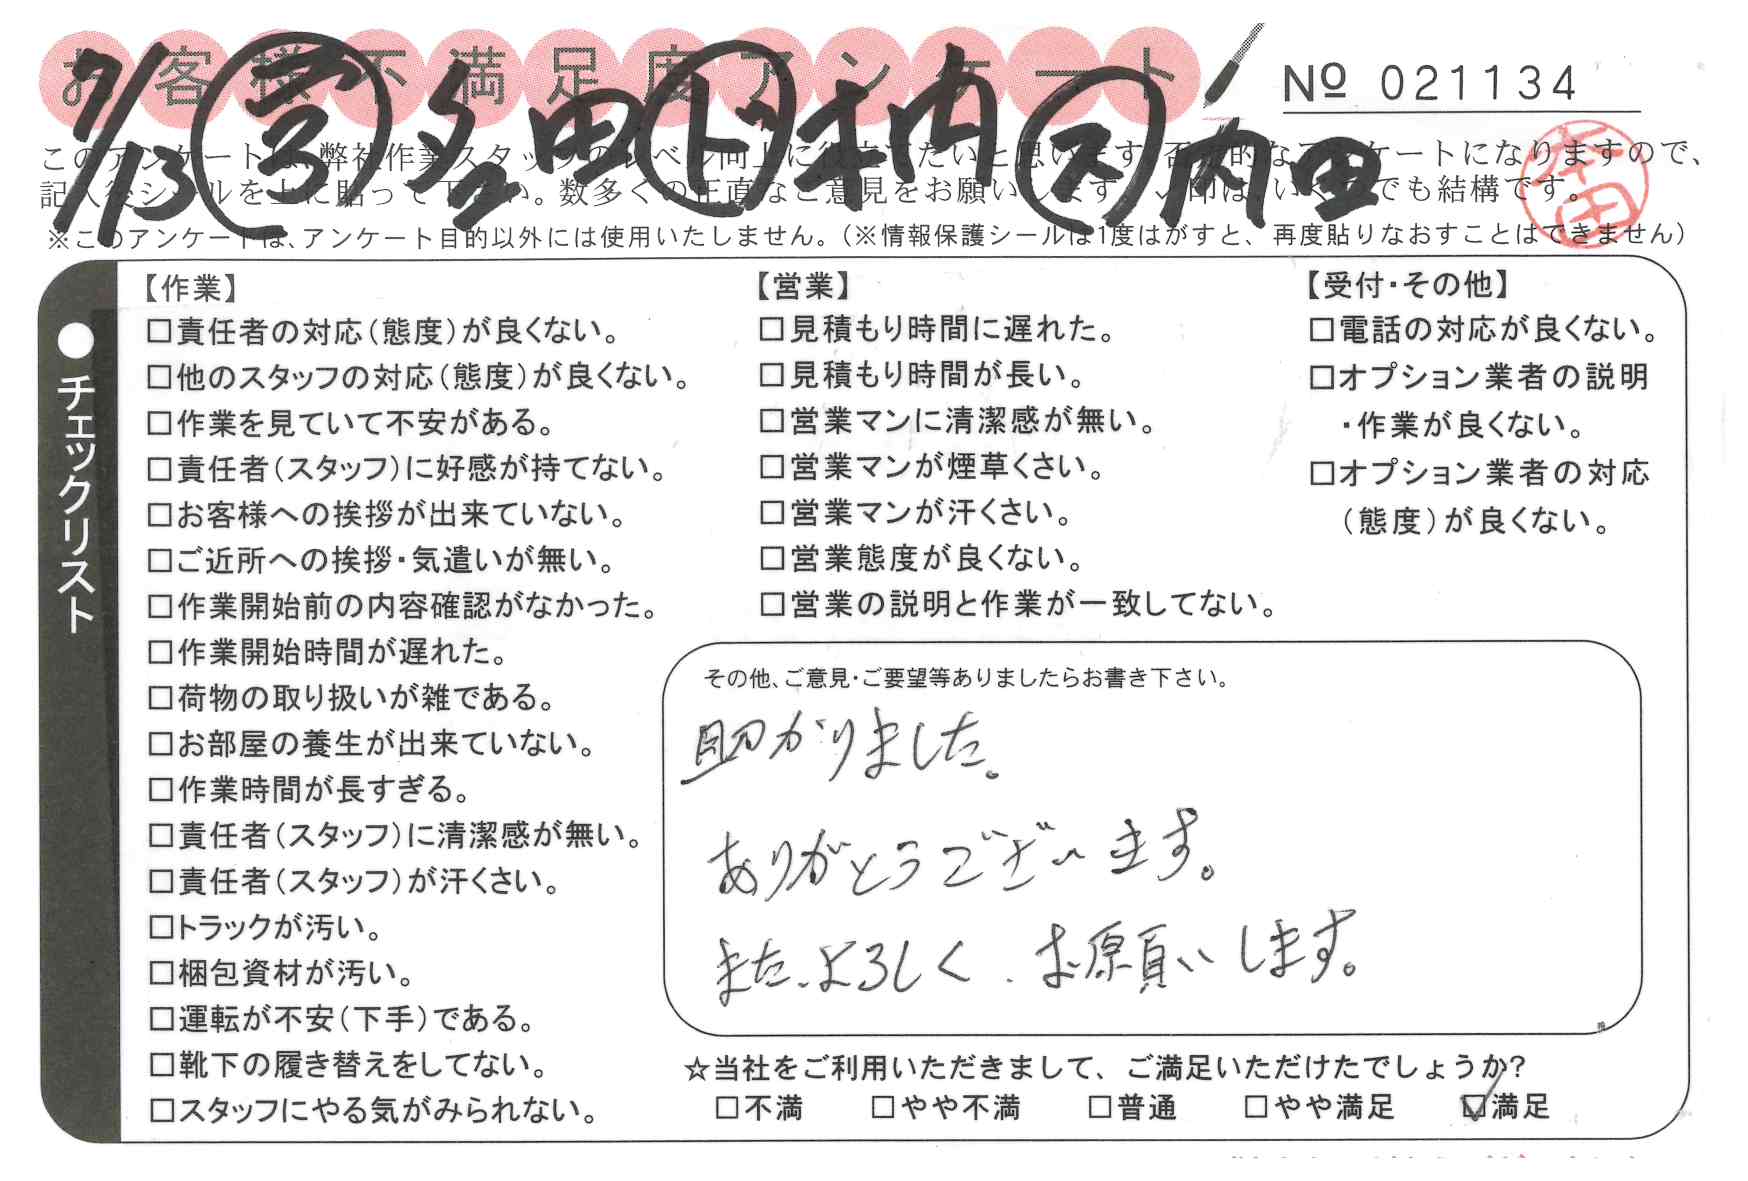 お客様不満足度アンケート
№ 021134
7/13 営 多田 ド 木村 ス 内田
このアンケートは、弊社作業スタッフのレベル向上に役立てたいと思います。否定的なアンケートになりますので、
記入後シールを上に貼って下さい。数多くの正直なご意見をお願いします。✓印は、いくつでも結構です。
※このアンケートは、アンケート目的以外には使用いたしません。(※情報保護シールは1度はがすと、再度貼りなおすことはできません)
●チェックリスト
【作業】
□責任者の対応(態度)が良くない。
□他のスタッフの対応(態度)が良くない。
□作業を見ていて不安がある。
□責任者(スタッフ)に好感が持てない。
□お客様への挨拶が出来ていない。
□ご近所への挨拶・気遣いが無い。
□作業開始前の内容確認がなかった。
□作業開始時間が遅れた。
□荷物の取り扱いが雑である。
□お部屋の養生が出来ていない。
□作業時間が長すぎる。
□責任者(スタッフ)に清潔感が無い。
□責任者(スタッフ)が汗くさい。
□トラックが汚い。
□梱包資材が汚い。
□運転が不安(下手)である。
□靴下の履き替えをしてない。
□スタッフにやる気がみられない。
【営業】
□見積もり時間に遅れた。
□見積もり時間が長い。
□営業マンに清潔感が無い。
□営業マンが煙草くさい。
□営業マンが汗くさい。
□営業態度が良くない。
□営業の説明と作業が一致してない。
【受付・その他】
□電話の対応が良くない。
□オプション業者の説明
・作業が良くない。
□オプション業者の対応
(態度)が良くない。
その他、ご意見・ご要望等ありましたらお書き下さい。
助かりました。
ありがとうございます。
また、よろしく、お願いします。
☆当社をご利用いただきまして、ご満足いただけたでしょうか?
□不満 □やや不満 □普通 □やや満足 ☑満足